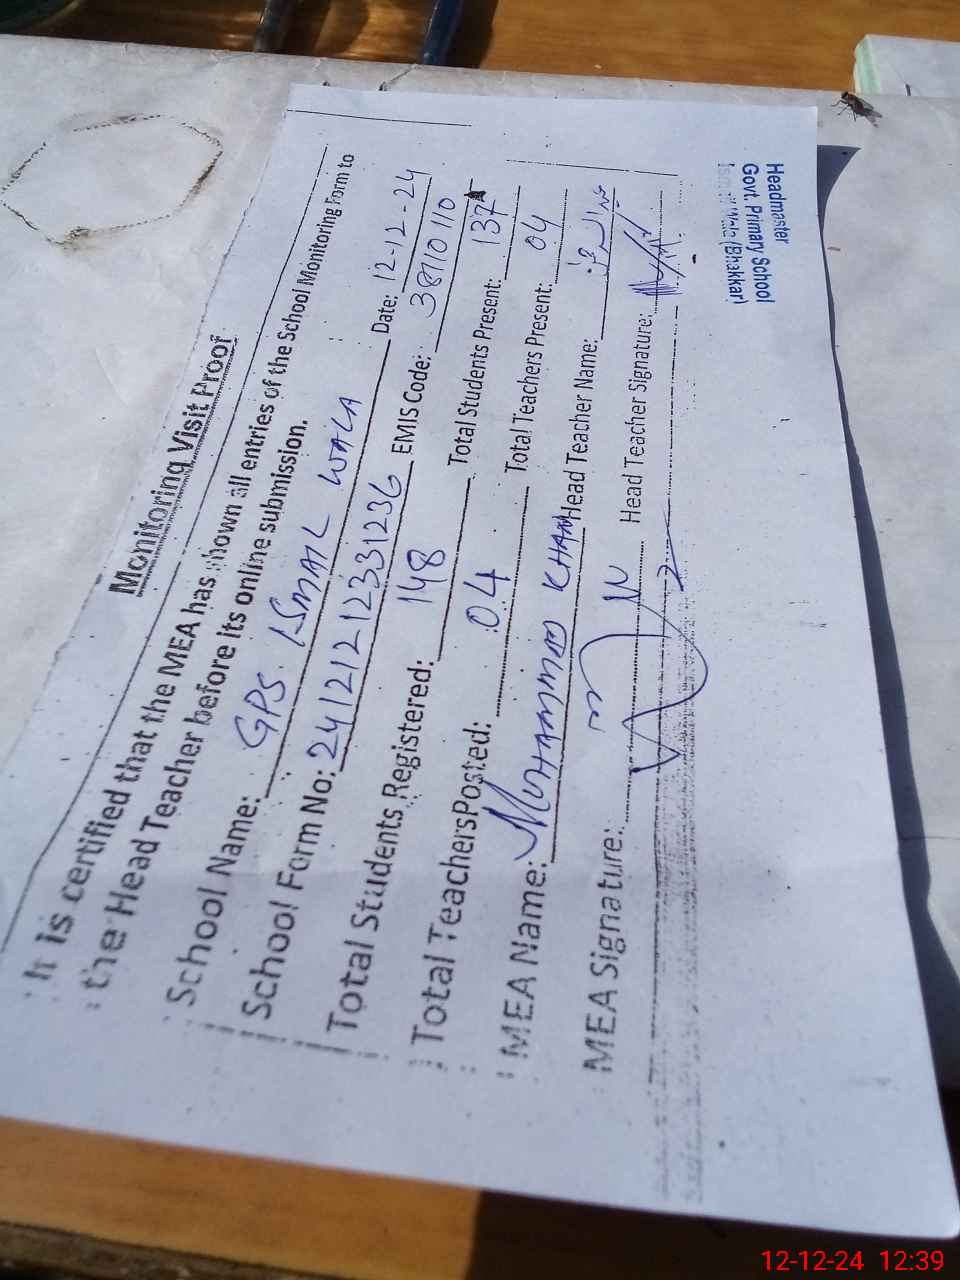 Monitoring Visit Proof
It is certified that the MEA has shown all entries of the School Monitoring Form to
the Head Teacher before its online submission.
School Name: GPS ISMAIL WALA Date: 12-12-24
School Form No: 24121212331236 EMIS Code: 38110110
Total Students Registered: 148 Total Students Present: 137
Total TeachersPosted: 04 Total Teachers Present: 04
MEA Name: MUHAMMAD KHAN Head Teacher Name:
MEA Signature: Head Teacher Signature:
Headmaster
Govt. Primary School
Wala (Bhakkar)
12-12-24 12:39